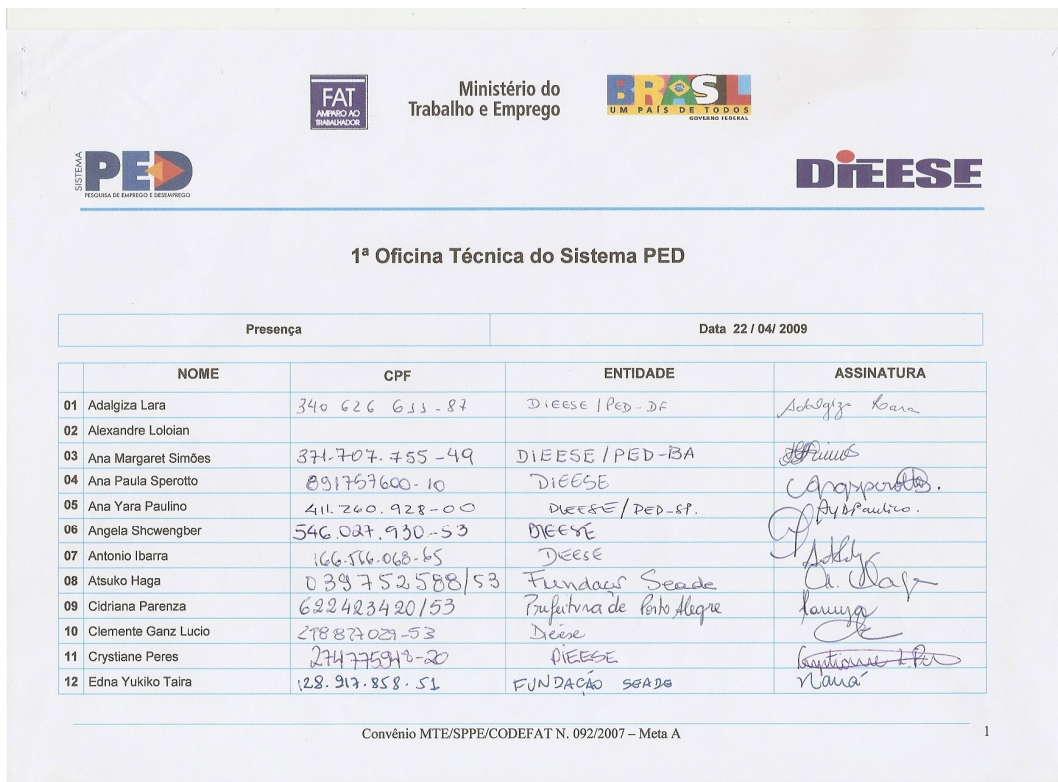 FAT
AMPARO AO
TRABALHADOR
Ministério do
Trabalho e Emprego
BRASIL
UM PAÍS DE TODOS
GOVERNO FEDERAL
SISTEMA
PED
PESQUISA DE EMPREGO E DESEMPREGO
DIEESE
1ª Oficina Técnica do Sistema PED
Presença Data 22 / 04/ 2009
NOME CPF ENTIDADE ASSINATURA
01 Adalgiza Lara 340 626 611-87 DIEESE/PED-DF Adalgiza Lara
02 Alexandre Loloian
03 Ana Margaret Simões 371.707.755-49 DIEESE/PED-BA
04 Ana Paula Sperotto 891757600-10 DIEESE
05 Ana Yara Paulino 411.260.928-00 DIEESE/PED-SP.
06 Angela Shcwengber 546.027.930-53 DIEESE
07 Antonio Ibarra 166.566.068-65 DIEESE
08 Atsuko Haga 039752588/53 Fundaçã Seade
09 Cidriana Parenza 622423420/53 Prefeitura de Porto Alegre
10 Clemente Ganz Lucio Dieese
11 Crystiane Peres 274775948-20 DIEESE
12 Edna Yukiko Taira 128.917.858.51 FUNDAÇÃO SEADE
Convênio MTE/SPPE/CODEFAT N. 092/2007 – Meta A 1